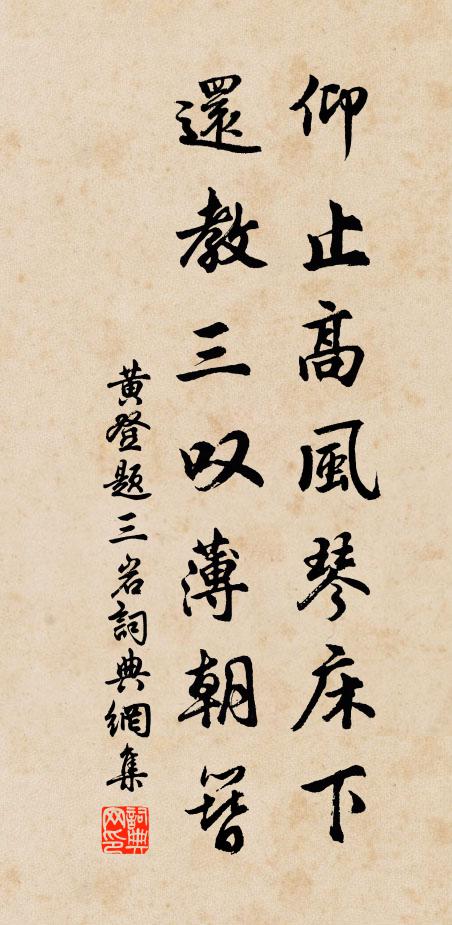 仰止高風琴床下
還教三叹薄朝簪
黄登題三岩詞典網集
詞典
网印